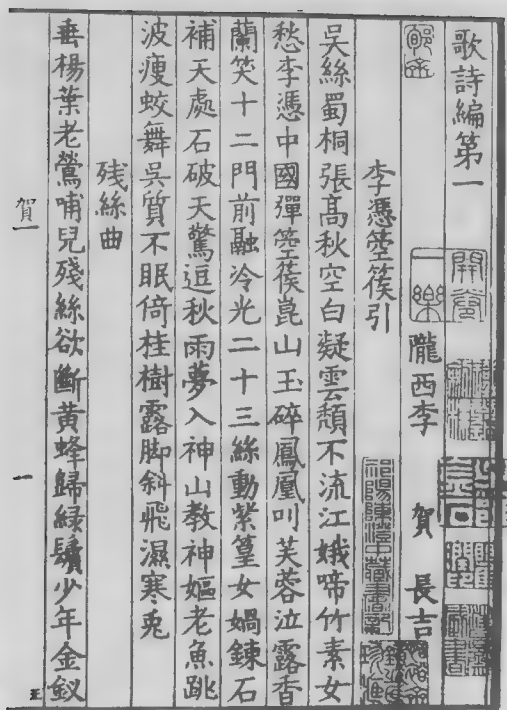 歌詩編第一
隴西李　賀　長吉
李憑箜篌引
吳絲蜀桐張髙秋空白凝雲頹不流江娥啼竹素女
愁李憑中國彈箜篌崑山玉碎鳳凰叫芙蓉泣露香
蘭笑十二門前融冷光二十三絲動紫篁女媧鍊石
補天處石破天驚逗秋雨夢入神山教神嫗老魚跳
波瘦蛟舞吳質不眠倚桂樹露脚斜飛濕寒兎
残絲曲
垂楊葉老鶯哺兒殘絲欲斷黃蜂歸緑鬢少年金釵
賀一
一
祁陽陳澄中藏書記